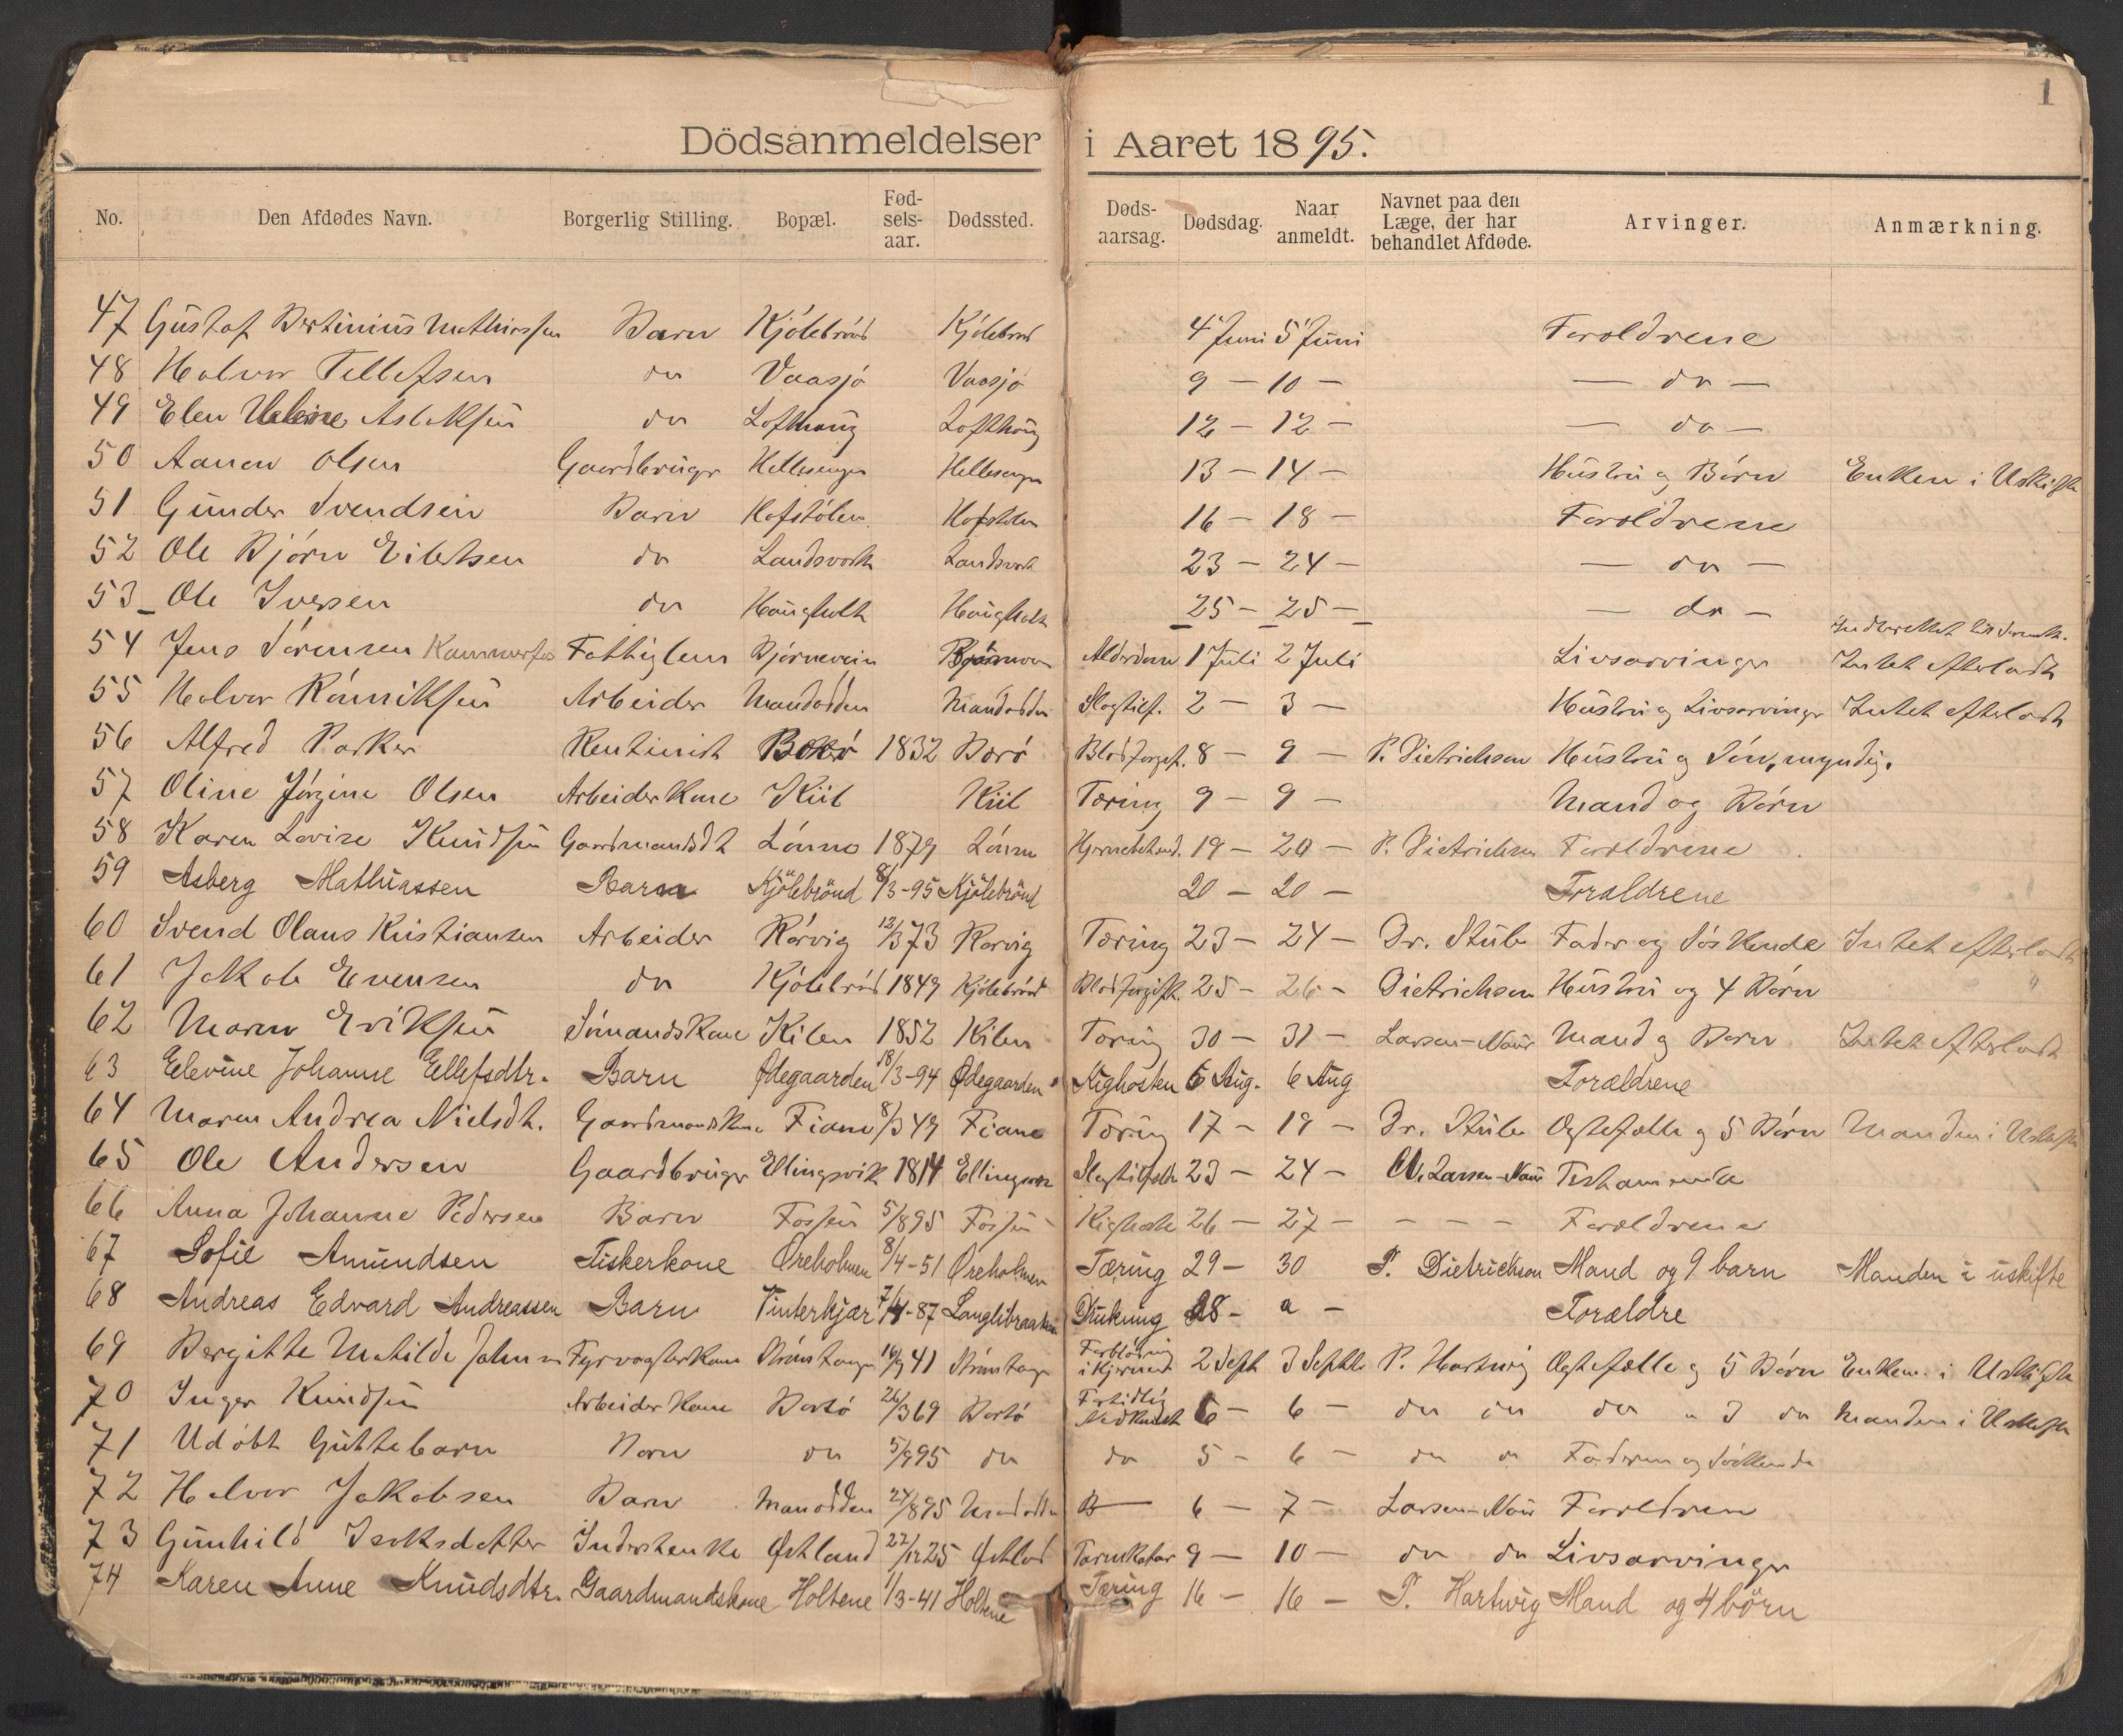 1
Dödsanmeldelser i Aaret 1895.
No. Den Afdødes Navn. Borgerlig Stilling. Bopæl. Fødselsaar. Dødssted. Dødsaarsag. Dødsdag. Naar anmeldt. Navnet paa den Læge, der har behandlet Afdøde. Arvinger. Anmærkning.
47 Gustaf Bertinius Mathiassen Barn Kjölebrönd Kjölebrönd 4 Juni 5 Juni Forældrene
48 Halvor Tellefsen do Vaasjö Vaasjö 9 — 10 — — do —
49 Elen Aslaksen do Lofthaug Lofthaug 12 — 12 — — do —
50 Aanen Olsen Gaardbruger Hellesengen Hellesengen 13 — 14 — Hustru og Börn Enken i Uskifte
51 Gunder Svendsen Barn Hafstölen Hafstölen 16 — 18 — Forældrene
52 Ole Björn Eilertsen do Landsverk Landsverk 23 — 24 — — do —
53 Ole Iversen do Haugholt Haugholt 25 — 25 — — do —
54 Jens Sörensen Fattiglem Björnevein Alderdom 1 Juli 2 Juli Livsarvinger Intet efterladt
55 Halvor Arbeider Mandodden Mandodden Slagtilf. 2 — 3 — Hustru og Livsarvinger Intet efterladt
56 Alfred Parker Rentinist Borö 1832 Borö Blodforgif. 8 — 9 — P. Dietrichson Hustru og Sön, myndig.
57 Oline Jörgine Olsen Arbeiderkone Kiil Kiil Tæring 9 — 9 — Mand og Börn
58 Karen Lovise Knudsen Gaardmandsdt Lönne 1879 Lönne 19 — 20 — P. Dietrichson Forældrene
59 Asberg Mathiassen Barn Kjölebrönd 8/3-95 Kjölebrönd 20 — 20 — Forældrene
60 Svend Olaus Kristiansen Arbeider Rörvig 12/3 73 Rörvig Tæring 23 — 24 — Dr. Stub Fader og Söskende Intet efterladt
61 Jakob Evensen do Kjölebrönd 1849 Kjölebrönd Blodforgift. 25 — 26 — Dietrichson Hustru og 4 Börn "
62 Maren Eriksen Sömandskone Kilen 1852 Kilen Tæring 30 — 31 — Larsen-Naur Mand og Börn Intet efterladt
63 Elevine Johanne Ellefsdtr. Barn Ødegaarden 18/3-94 Ødegaarden Kighosten 6 Aug. 6 Aug Forældrene
64 Maren Andrea Nielsdt. Gaardmandskone Fiane 8/3 49 Fiane Tæring 17 — 19 — Dr. Stub Ægtefælle og 5 Börn Manden i Uskifte
65 Ole Andersen Gaardbruger Ellingsvik 1814 Ellingsvik Slagtilfælde 23 — 24 — Larsen-Naur
66 Anna Johanne Pedersen Barn Fossen 5/8 95 Fossen Kighoste 26 — 27 — - - - Forældrene
67 Sofie Amundsen Fiskerkone Øreholmen 8/4-51 Øreholmen Tæring 29 — 30 P. Dietrichson Mand og 9 barn Manden i uskifte
68 Andreas Edvard Andreassen Barn Vinterkjær 7/4-87 Drukning 28 — Forældre
69 Bergitte Matilde Fyrvogterkone Strömstangen 16/9 41 Strömstangen Forblödning i Hjernen 2 Sept 3 Septbr P. Hartwig Ægtefælle og 5 Börn Enkem. i Uskifte
70 Inger Knudsen Arbeiderkone Bertö 26/3 69 Bertö Fortidlig Nedkomst 6 — 6 — do do do " 3 do Manden i Uskifte
71 Udöbt Guttebarn Barn do 5/9 95 do do 5 — 6 — do do Faderen og Söskende
72 Halvor Jakobsen Barn Manodden 24/8 95 6 — 7 — Larsen-Naur Forældrene
73 Gunhild Isaksdatter Inderstenke Østland 22/12 25 Østland Tarmkatar 9 — 10 — do do Livsarvinger
74 Karen Anne Knudsdtr. Gaardmandskone Holtene 1/3-41 Holtene Tæring 16 — 16 — P. Hartwig Mand og 4 börn